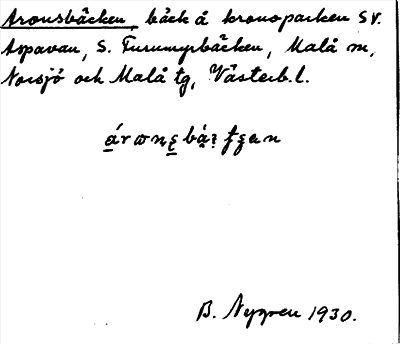 Aronsbäcken, bäck å kronoparken SV.
Aspavan, S. Furumyrbäcken, Malå sn,
Norsjö och Malå tg, Västerb. l.
B. Nygren 1930.